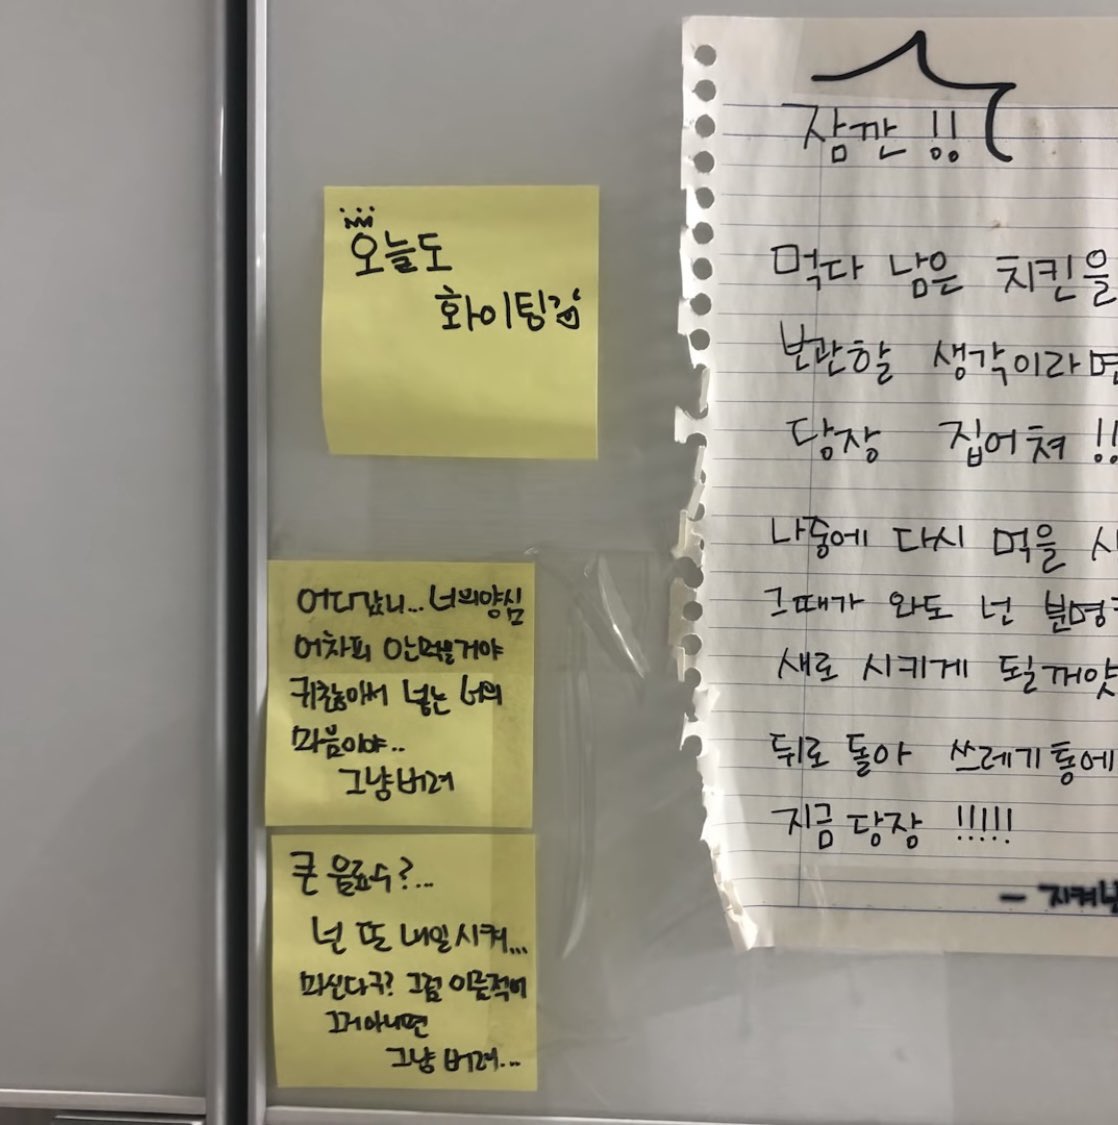 오늘도
화이팅
어디갔니... 너의양심
어차피 안먹을거야
귀찮아서 넣는 너의
마음이야..
그냥버려
큰 음료수?...
넌 또 내일시켜...
마신다구? 그럼 이름적어
그냥 버려...
잠깐 !!
먹다 남은 치킨을
보관할 생각이라면
당장 집어쳐 !!
나중에 다시 먹을
그때가 와도 넌 분명
새로 시키게 될꺼얏
뒤로 돌아 쓰레기통에
지금 당장 !!!!!